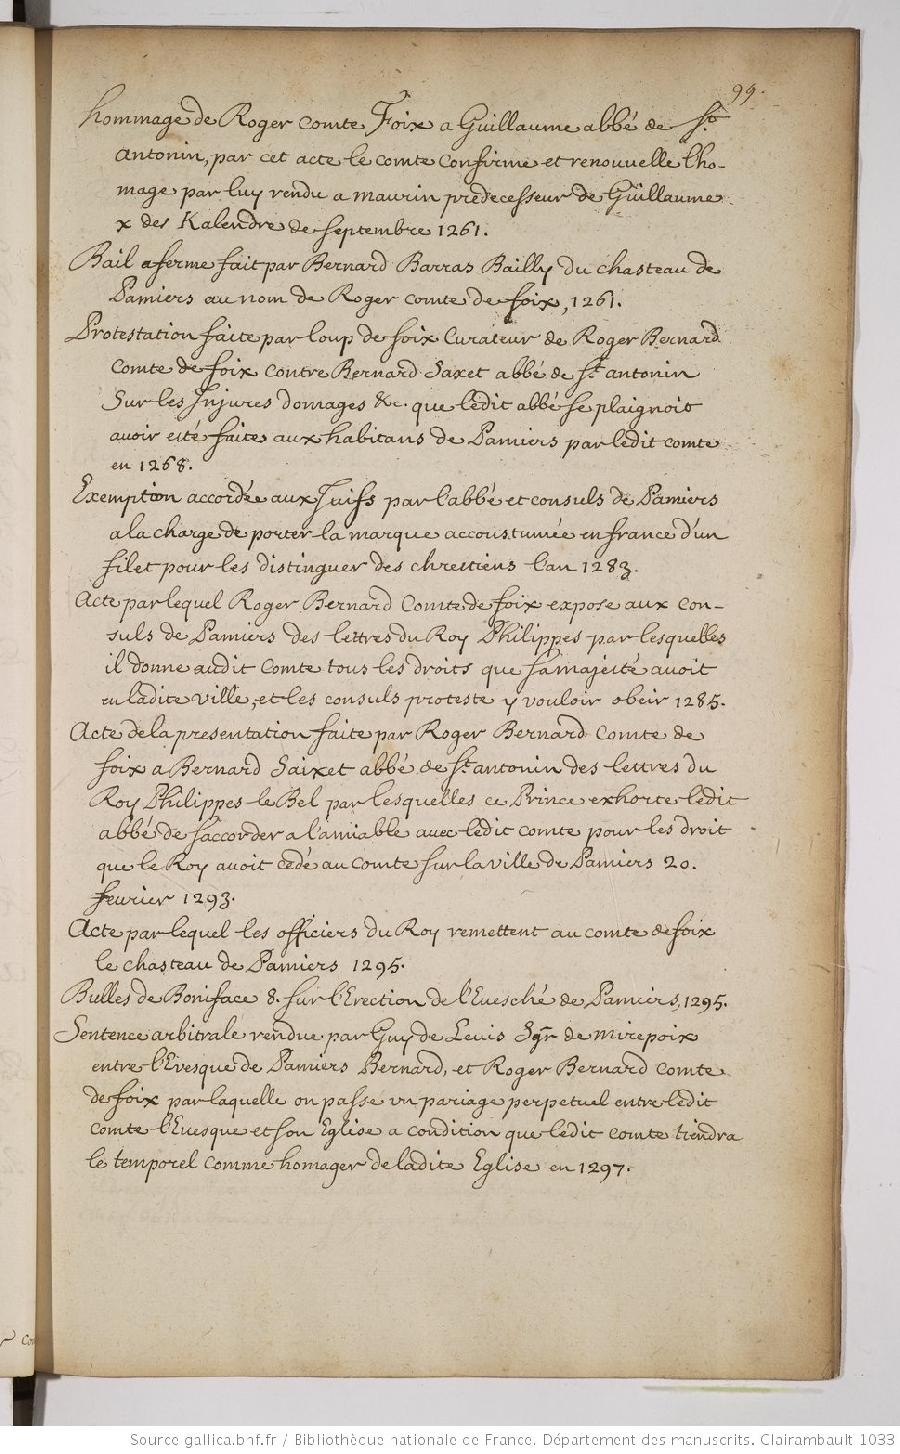 99.
hommage de Roger comte Foix a Guillaume abbé de St
Antonin, par cet acte le comte confirme et renouvelle lho-
mage par luy rendu a maurin predecesseur de Guillaume
x des Kalendre de septembre 1261.
Bail aferme fait par Bernard Barras Bailly du chasteau de
Pamiers au nom de Roger comte de foix, 1261.
Protestation faite par loup de foix Curateur de Roger Bernard
comte de foix contre Bernard Saxet abbé de St antonin
Sur les Injures domages &c. que ledit abbé se plaignoit
avoir esté faites aux habitans de Pamiers par ledit comte
en 1268.
Exemption accordée aux Juifs par l'abbé et consuls de Pamiers
a la charge de porter la marque accoustumée en france d'un
filet pour les distinguer des chrestiens l'an 1283.
Acte par lequel Roger Bernard Comte de foix expose aux con-
suls de Pamiers des lettres du Roy Philippes par lesquelles
il donne audit comte tous les droits que sa majesté avoit
en ladite ville, et les consuls proteste y vouloir obeir 1285.
Acte de la presentation faite par Roger Bernard comte de
foix a Bernard Saixet abbé de St antonin des lettres du
Roy Philippes le Bel par lesquelles ce Prince exhorte ledit
abbé de s'accorder a l'amiable avec ledit comte pour les droit
que le Roy avoit cedé au comte sur la ville de Pamiers 20.
fevrier 1293.
Acte par lequel les officiers du Roy remettent au comte de foix
le chasteau de Pamiers 1295.
Bulles de Boniface 8. sur l'Erection de l'Evesché de Pamiers, 1295.
Sentence arbitrale rendue par Guy de Levis Sgr de mirepoix
entre l'Evesque de Pamiers Bernard, et Roger Bernard comte
de foix par laquelle on passe un pariage perpetuel entre ledit
comte l'Evesque et son Eglise a condition que ledit comte tiendra
le temporel comme homager de ladite Eglise en 1297.
Source gallica.bnf.fr / Bibliothèque nationale de France. Département des manuscrits. Clairambault 1033